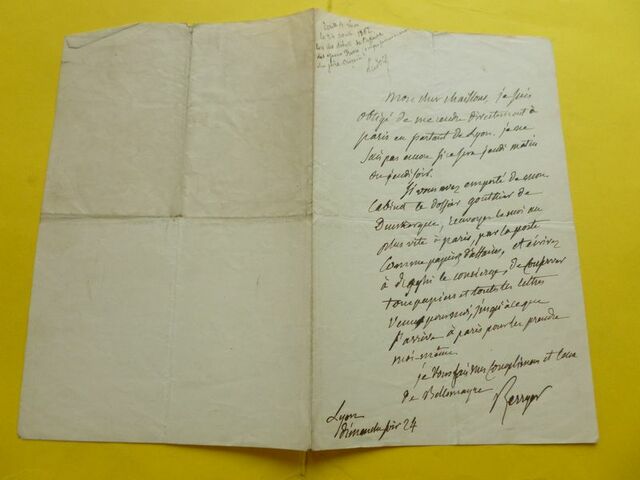 Mon cher chaillous, je suis
obligé de me rendre directement à
paris en partant de Lyon. je ne
sais pas encore si ce sera jeudi matin
ou jeudi soir.
Si vous avez emporté de mon
Cabinet le dossier gouthier de
Dunkerque, renvoyez le moi au
plus vite à paris, par la poste
Comme papiers d'affaires, et écrivez
à le concierge, de conserver
tous papiers et toutes les lettres
venus pour moi, jusqu'à ce que
j'arrive à paris pour les prendre
moi-même
je vous fais mes Complimens et ceux
de Bellemayre
Berryer
Lyon
dimanche soir 24